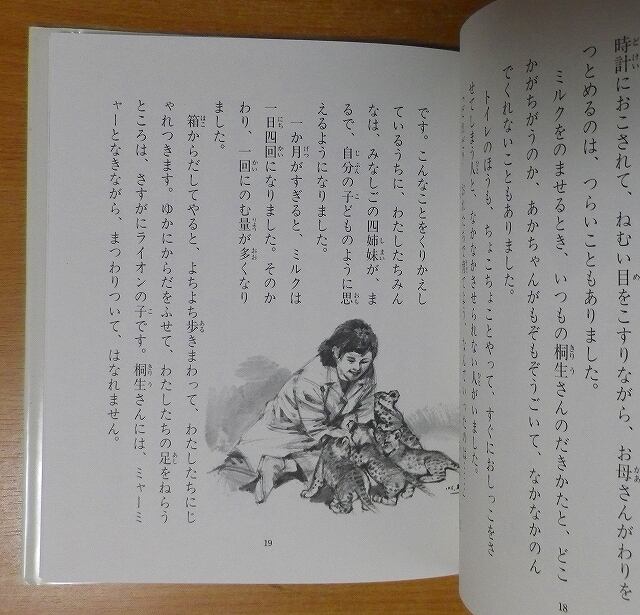 時計におこされて、ねむい目をこすりながら、お母さんがわりを
つとめるのは、つらいこともありました。
ミルクをのませるとき、いつもの桐生さんのだきかたと、どこ
かがちがうのか、あかちゃんがもぞもぞうごいて、なかなかのん
でくれないこともありました。
トイレのほうも、ちょこちょことやって、すぐにおしっこをさ
せてしまう人と、なかなかさせられない人がいました。
18
です。こんなことをくりかえし
ているうちに、わたしたちみん
なは、みなしごの四姉妹が、ま
るで、自分の子どものように思
えるようになりました。
一か月がすぎると、ミルクは
一日四回になりました。そのか
わり、一回にのむ量が多くなり
ました。
箱からだしてやると、よちよち歩きまわって、わたしたちにじ
ゃれつきます。ゆかにからだをふせて、わたしたちの足をねらう
ところは、さすがにライオンの子です。桐生さんには、ミャーミ
ャーとなきながら、まつわりついて、はなれません。
19